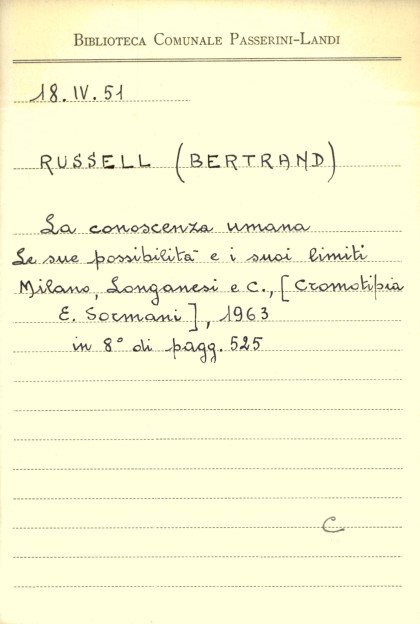 BIBLIOTECA COMUNALE PASSERINI-LANDI
18.IV.51
RUSSELL (BERTRAND)
La conoscenza umana
Le sue possibilità e i suoi limiti
Milano, Longanesi e C., [Cromotipia
E. Sormani], 1963
in 8° di pagg. 525
C